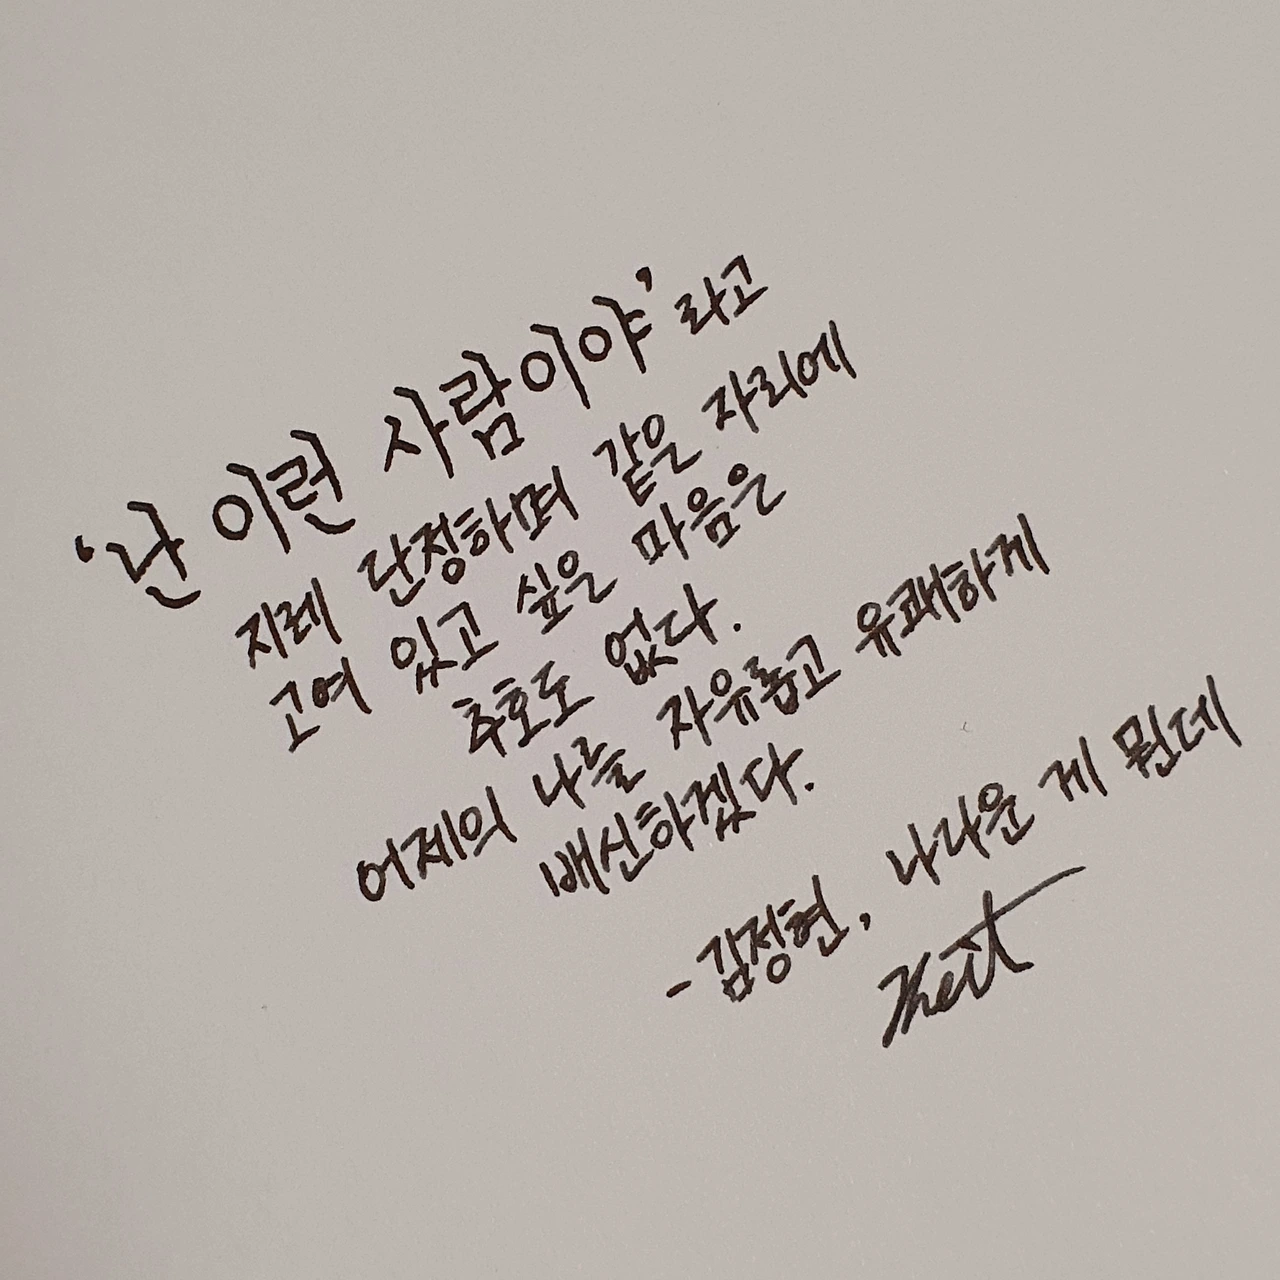 '난 이런 사람이야'라고
지레 단정하며 같은 자리에
고여 있고 싶은 마음은
추호도 없다.
어제의 나를 자유롭고 유쾌하게
배신하겠다.
- 김정현, 나다운 게 뭔데